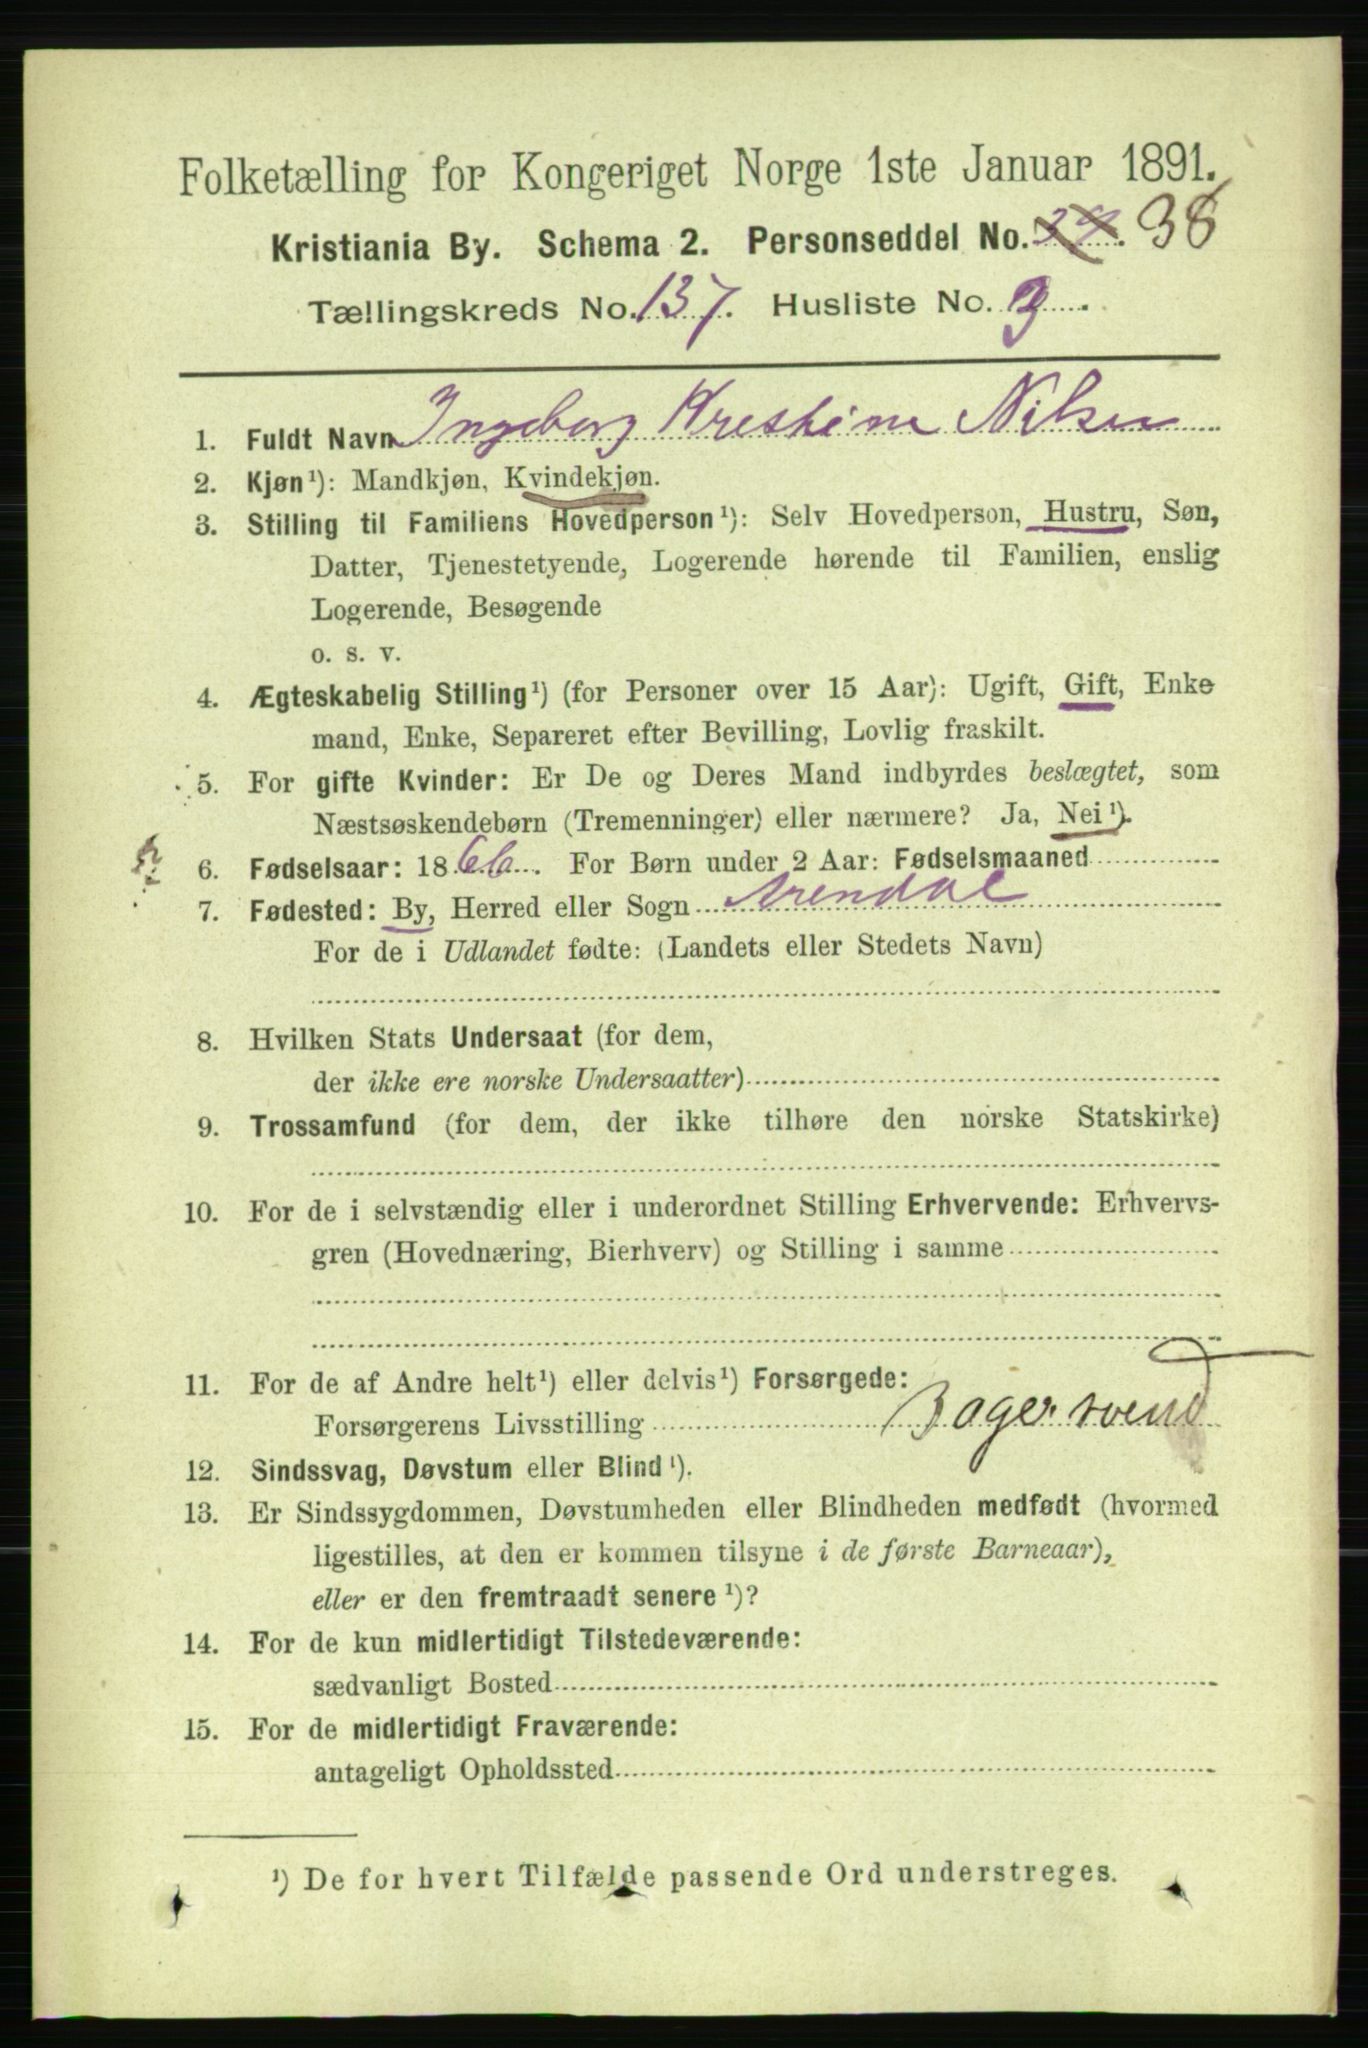 Folketælling for Kongeriget Norge 1ste Januar 1891.
Kristiania By. Schema 2. Personseddel No. 38
Tællingskreds No. 137. Husliste No. 3.
1. Fuldt Navn Ingeborg Krestine Nilsen
2. Kjøn¹): Mandkjøn, Kvindekjøn.
3. Stilling til Familiens Hovedperson¹): Selv Hovedperson, Hustru, Søn,
Datter, Tjenestetyende, Logerende hørende til Familien, enslig
Logerende, Besøgende
o. s. v.
4. Ægteskabelig Stilling¹) (for Personer over 15 Aar): Ugift, Gift, Enke
mand, Enke, Separeret efter Bevilling, Lovlig fraskilt.
5. For gifte Kvinder: Er De og Deres Mand indbyrdes beslægtet, som
Næstsøskendebørn (Tremenninger) eller nærmere? Ja, Nei¹).
6. Fødselsaar: 1866. For Børn under 2 Aar: Fødselsmaaned
7. Fødested: By, Herred eller Sogn Arendal
For de i Udlandet fødte: (Landets eller Stedets Navn)
8. Hvilken Stats Undersaat (for dem,
der ikke ere norske Undersaatter)
9. Trossamfund (for dem, der ikke tilhøre den norske Statskirke)
10. For de i selvstændig eller i underordnet Stilling Erhvervende: Erhvervs-
gren (Hovednæring, Bierhverv) og Stilling i samme
11. For de af Andre helt¹) eller delvis¹) Forsørgede:
Forsørgerens Livsstilling Bagersvend
12. Sindssvag, Døvstum eller Blind¹).
13. Er Sindssygdommen, Døvstumheden eller Blindheden medfødt (hvormed
ligestilles, at den er kommen tilsyne i de første Barneaar),
eller er den fremtraadt senere¹)?
14. For de kun midlertidigt Tilstedeværende:
sædvanligt Bosted
15. For de midlertidigt Fraværende:
antageligt Opholdssted
¹) De for hvert Tilfælde passende Ord understreges.